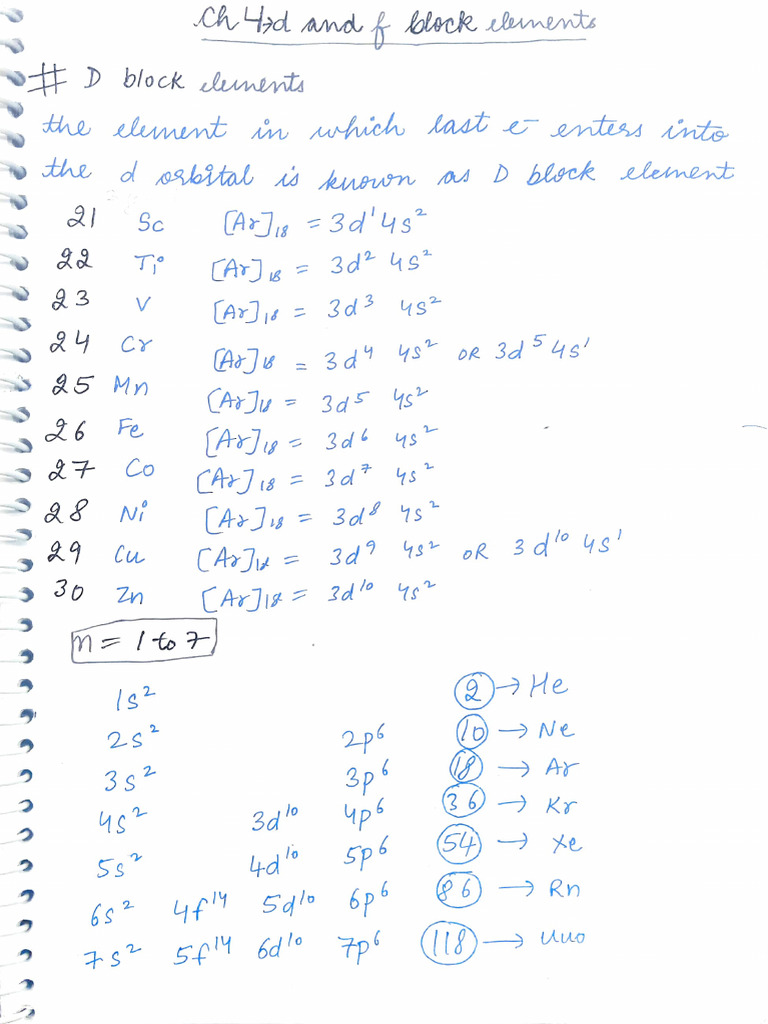 Ch 4→d and f block elements
# D block elements
the element in which last e⁻ enters into
the d orbital is known as D block element
21 Sc [Ar]₁₈ = 3d¹4s²
22 Ti [Ar]₁₈ = 3d² 4s²
23 V [Ar]₁₈ = 3d³ 4s²
24 Cr [Ar]₁₈ = 3d⁴ 4s² OR 3d⁵4s¹
25 Mn [Ar]₁₈ = 3d⁵ 4s²
26 Fe [Ar]₁₈ = 3d⁶ 4s²
27 Co [Ar]₁₈ = 3d⁷ 4s²
28 Ni [Ar]₁₈ = 3d⁸ 4s²
29 Cu [Ar]₁₈ = 3d⁹ 4s² OR 3d¹⁰ 4s¹
30 Zn [Ar]₁₈ = 3d¹⁰ 4s²
n = 1 to 7
1s² 2 → He
2s² 2p⁶ 10 → Ne
3s² 3p⁶ 18 → Ar
4s² 3d¹⁰ 4p⁶ 36 → Kr
5s² 4d¹⁰ 5p⁶ 54 → Xe
6s² 4f¹⁴ 5d¹⁰ 6p⁶ 86 → Rn
7s² 5f¹⁴ 6d¹⁰ 7p⁶ 118 → Uuo